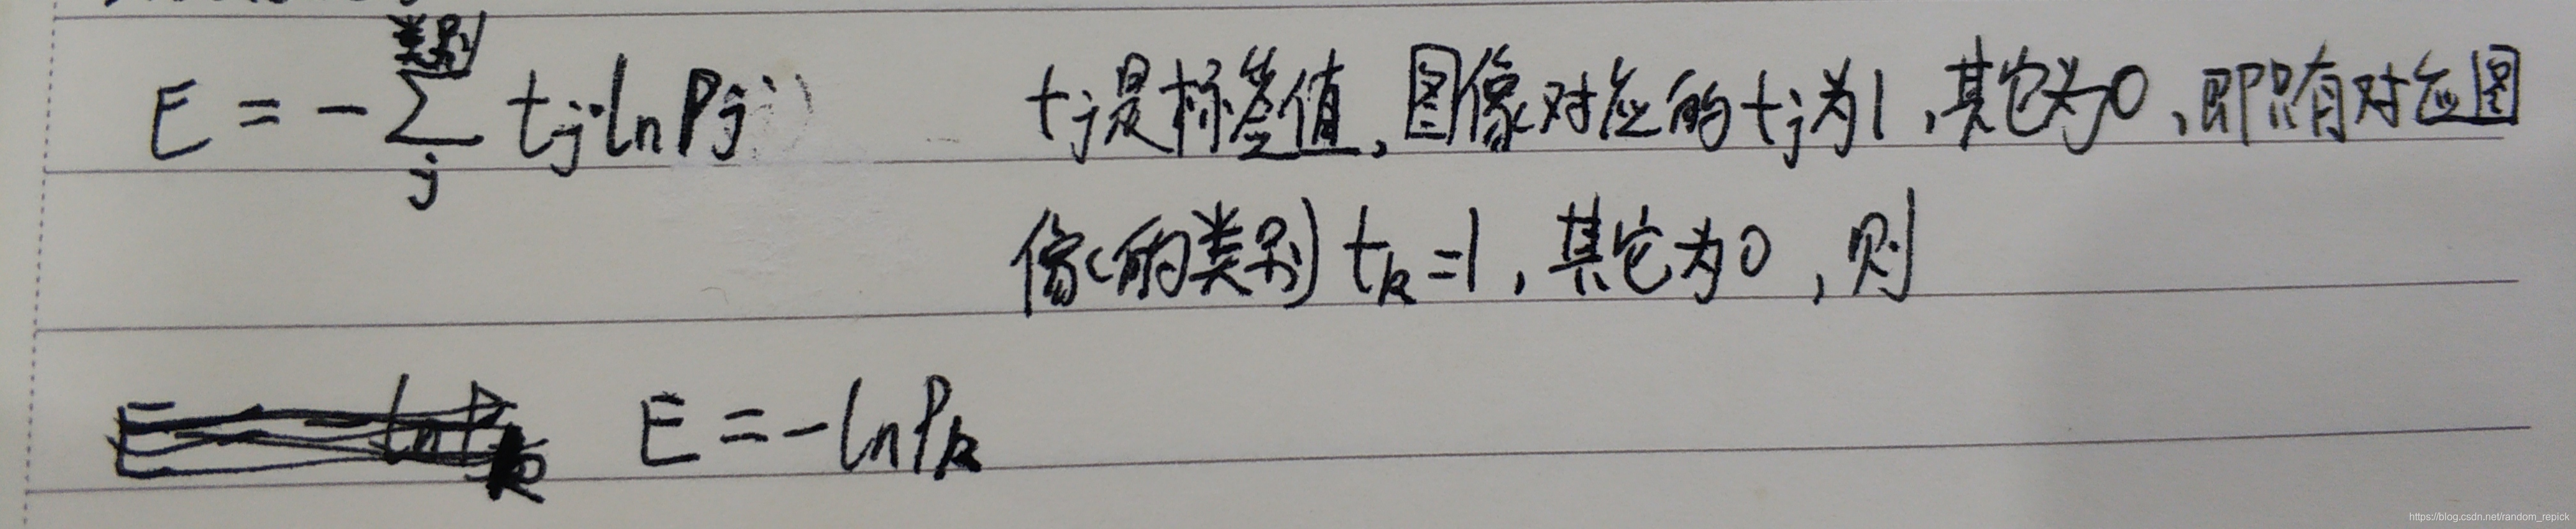 类别
E = -∑ tj·ln Pj tj是标签值,图像对应的tj为1,其它为0,即只有对应图
j
像(的类别) tk=1,其它为0,则
E = -ln Pk
https://blog.csdn.net/random_repick